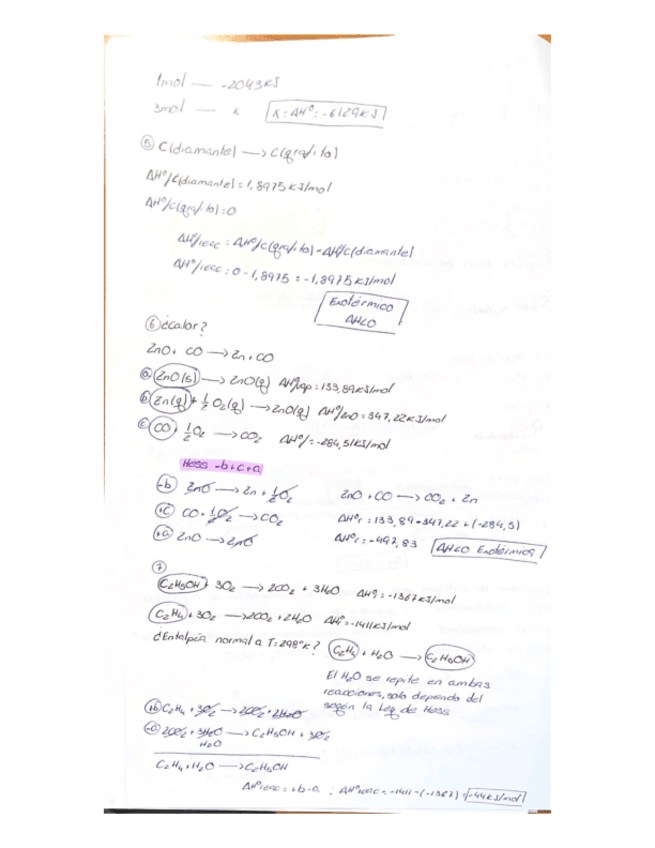 1mol — -2043KJ
3mol — x   X=ΔHº=-6129KJ
⑤ C(diamante) → C(grafito)
ΔHºf C(diamante)=1,8975KJ/mol
ΔHºf C(grafito)=0
ΔHºreac=ΔHºf C(grafito)-ΔHºf C(diamante)
ΔHºreac=0-1,8975=-1,8975KJ/mol
Exotérmico
ΔH<0
⑥ ¿calor?
ZnO+ CO → Zn+CO
ⓐ ZnO(s) → ZnO(g) ΔHºvap=133,89KJ/mol
ⓑ Zn(g)+ ½ O₂(g) → ZnO(g) ΔHºf ZnO=347,22KJ/mol
ⓒ CO+ ½O₂ → CO₂ ΔHºf=-284,51KJ/mol
Hess -b+c+a
-b ZnO → Zn + ½O₂   ZnO+CO → CO₂ + Zn
+c CO+½O₂ → CO₂   ΔHºr=133,89-347,22+(-284,5)
+a ZnO → ZnO   ΔHºr=-497,83   ΔH<0 Exotérmica
⑦
C₂H₅OH+ 3O₂ → 2CO₂ + 3H₂O ΔHº=-1367KJ/mol
C₂H₄+3O₂ → 2CO₂+2H₂O ΔHº=-1411KJ/mol
¿Entalpía normal a T=298ºK?   C₂H₄ + H₂O → C₂H₅OH
El H₂O se repite en ambas
reacciones, solo dependo del
según la Ley de Hess
+b C₂H₄ + 3O₂ → 2CO₂+2H₂O
-a 2CO₂+3H₂O → C₂H₅OH + 3O₂
H₂O
C₂H₄+H₂O → C₂H₅OH
ΔHºreac=+b-a ; ΔHºreac=-1411-(-1367)=-44KJ/mol